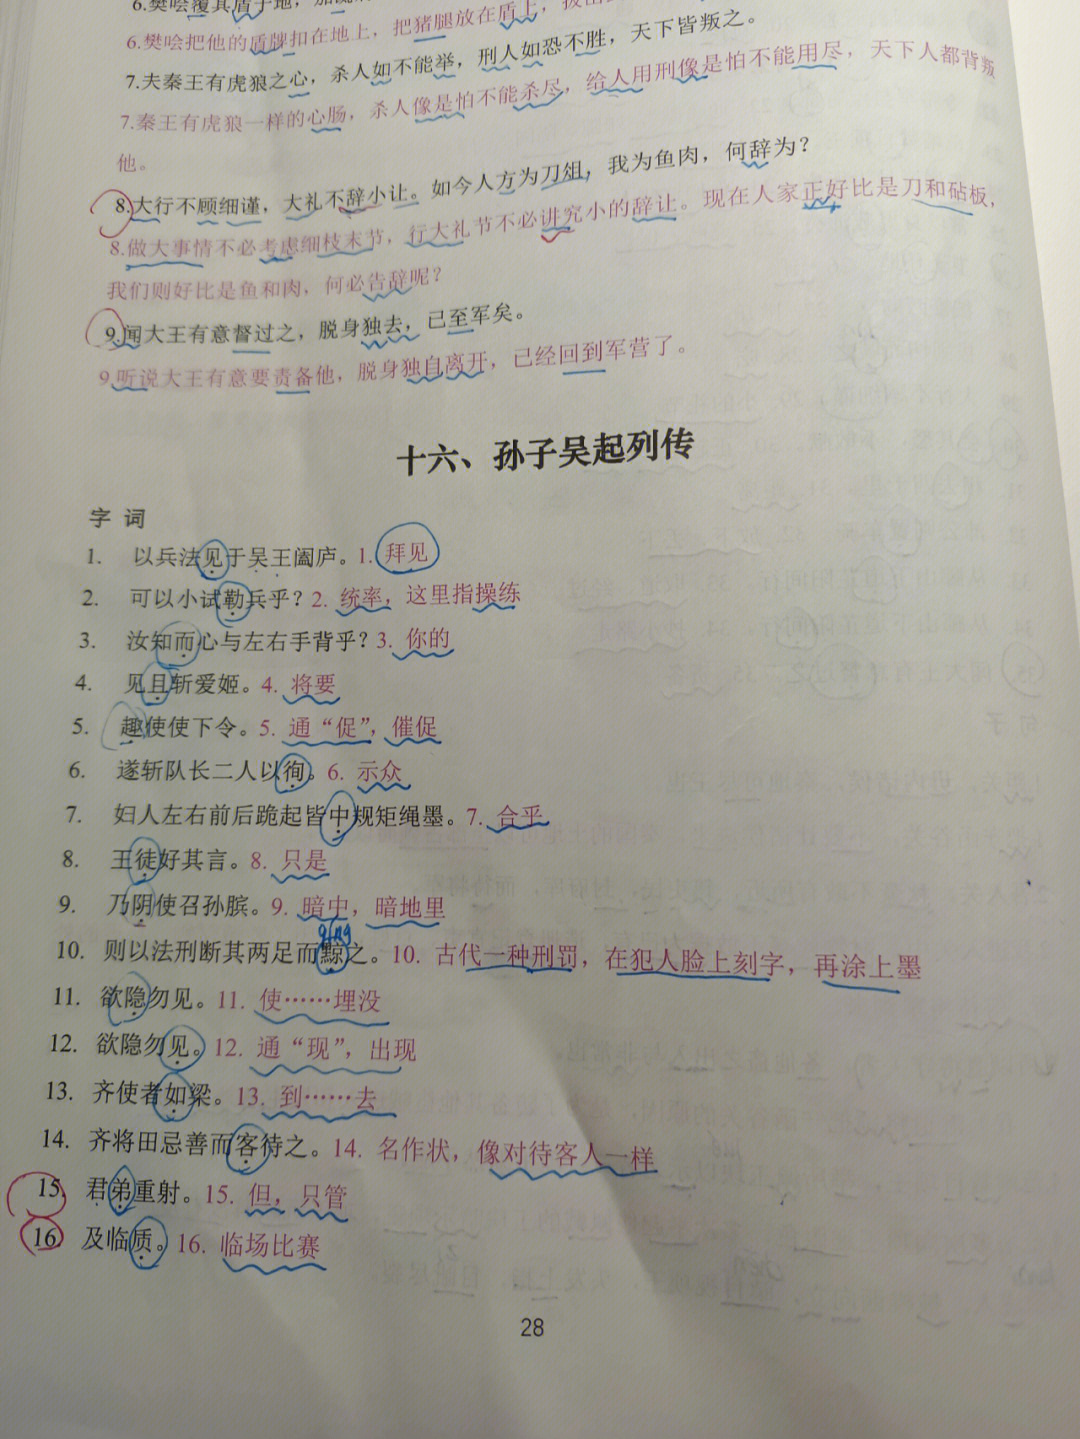 6.樊哙覆其盾于地，
6.樊哙把他的盾牌扣在地上，把猪腿放在盾上，
7.夫秦王有虎狼之心，杀人如不能举，刑人如恐不胜，天下皆叛之。
7.秦王有虎狼一样的心肠，杀人像是怕不能杀尽，给人用刑像是怕不能用尽，天下人都背叛
他。
8.大行不顾细谨，大礼不辞小让。如今人方为刀俎，我为鱼肉，何辞为？
8.做大事情不必考虑细枝末节，行大礼节不必讲究小的辞让。现在人家正好比是刀和砧板，
我们则好比是鱼和肉，何必告辞呢？
9.闻大王有意督过之，脱身独去，已至军矣。
9.听说大王有意要责备他，脱身独自离开，已经回到军营了。
十六、孙子吴起列传
字 词
1. 以兵法见于吴王阖庐。1. 拜见
2. 可以小试勒兵乎？2. 统率，这里指操练
3. 汝知而心与左右手背乎？3. 你的
4. 见且斩爱姬。4. 将要
5. 趣使使下令。5. 通“促”，催促
6. 遂斩队长二人以徇。6. 示众
7. 妇人左右前后跪起皆中规矩绳墨。7. 合乎
8. 王徒好其言。8. 只是
9. 乃阴使召孙膑。9. 暗中，暗地里
qíng
10. 则以法刑断其两足而黥之。10. 古代一种刑罚，在犯人脸上刻字，再涂上墨
11. 欲隐勿见。11. 使……埋没
12. 欲隐勿见。12. 通“现”，出现
13. 齐使者如梁。13. 到……去
14. 齐将田忌善而客待之。14. 名作状，像对待客人一样
15. 君弟重射。15. 但，只管
16. 及临质。16. 临场比赛
28